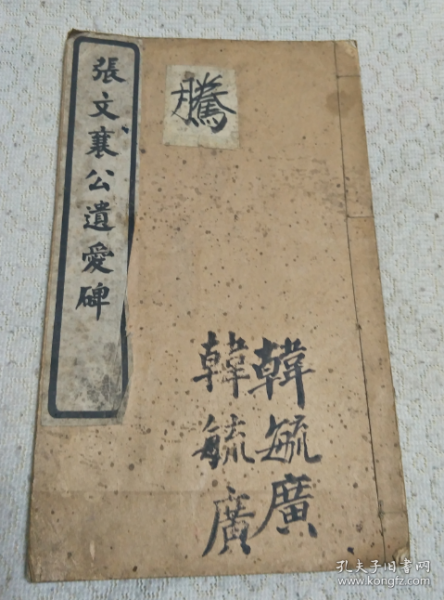 張文襄公遺愛碑
騰
韓毓廣
韓毓廣
孔夫子旧书网
www.kongfz.com